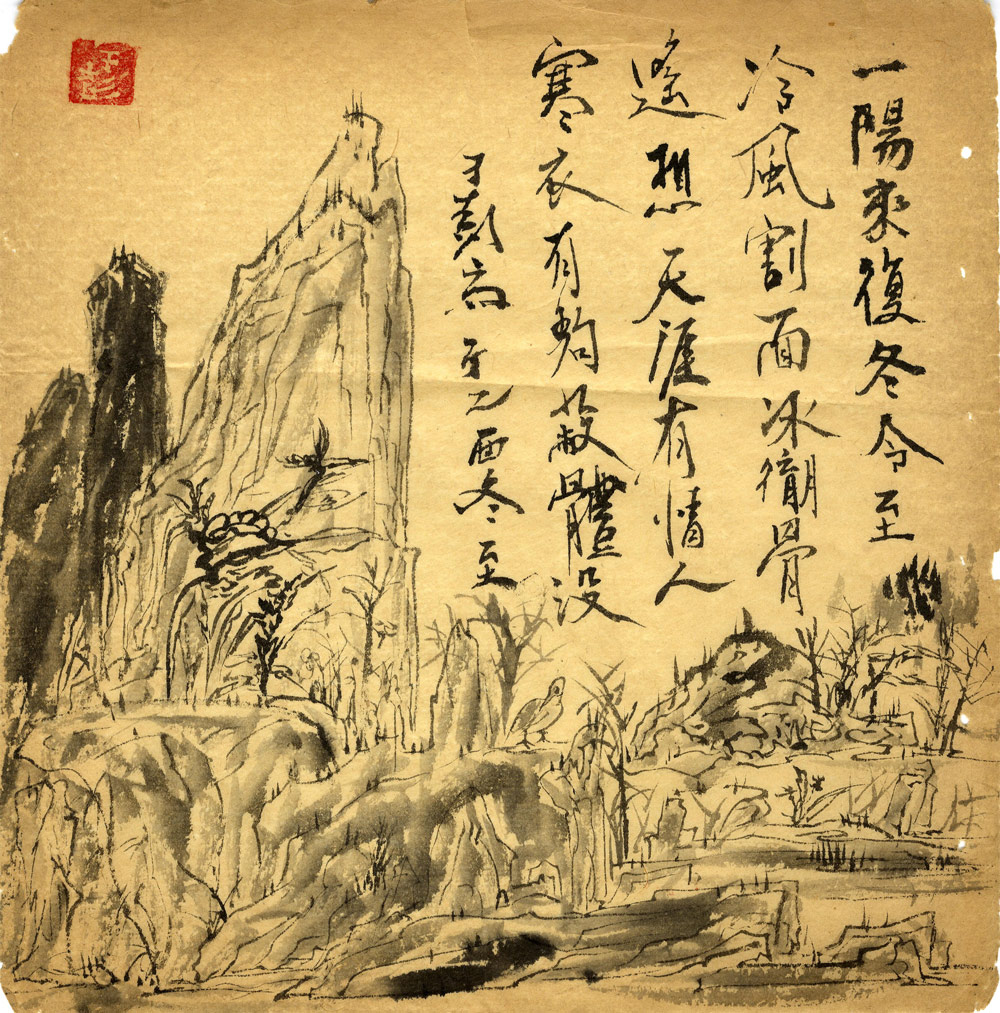 一陽來復冬令至
冷風割面冰徹骨
遙想天涯有情人
寒衣有夠蔽體没
于彭 乙酉冬至
于彭